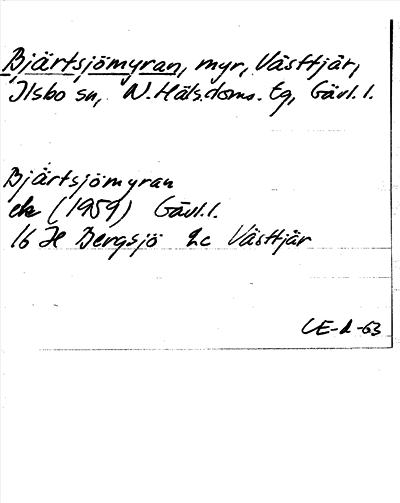 Bjärtsjömyran, myr, Västtjär,
Ilsbo sn, N.Häls.doms. tg, Gävl.l.
Bjärtsjömyran
ek (1959) Gävl.l.
16 H Bergsjö 2c Västtjär
CE-A-63